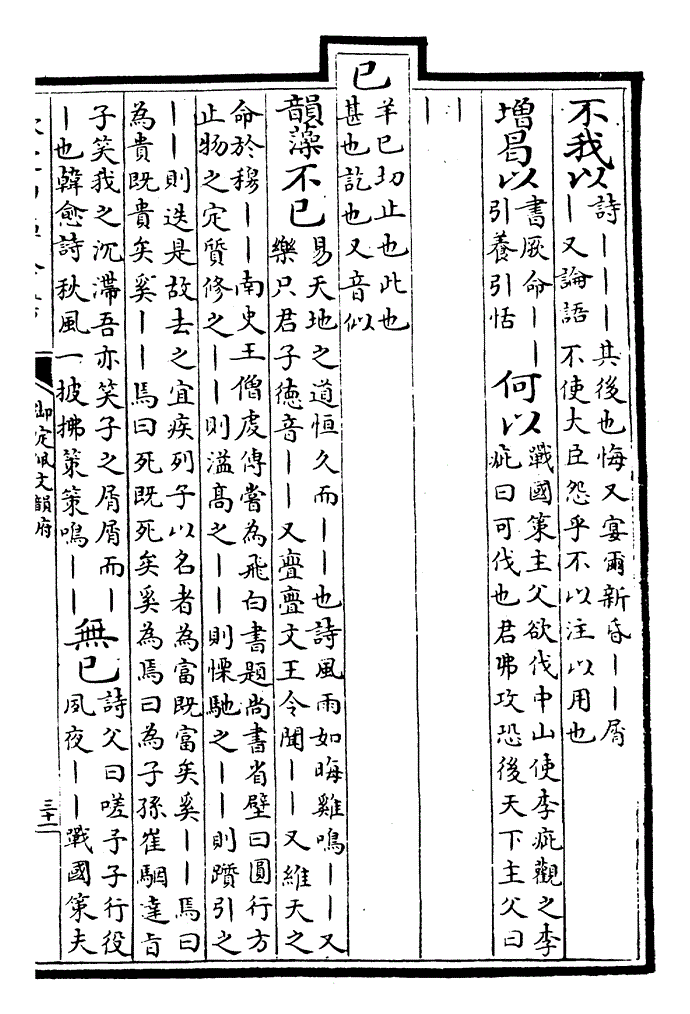 不我以
詩丨丨丨其後也悔又宴爾新昏丨丨屑
丨又論語不使大臣怨乎不以注以用也
增曷以
書厥命丨丨
引養引恬
何以
戰國策主父欲伐中山使李疵觀之李
疵曰可伐也君弗攻恐後天下主父曰
丨
丨
已
羊已切止也此也
甚也訖也又音似
韻藻不已
易天地之道恒久而丨丨也詩風雨如晦雞鳴丨丨又
樂只君子德音丨丨又亹亹文王令聞丨丨又維天之
命於穆丨丨南史王僧虔傳嘗為飛白書題尚書省壁曰圓行方
止物之定質修之丨丨則溢高之丨丨則慄馳之丨丨則躓引之
丨丨則迭是故去之宜疾列子以名者為富既富矣奚丨丨焉曰
為貴既貴矣奚丨丨焉曰死既死矣奚為焉曰為子孫崔駰達旨
子笑我之沉滯吾亦笑子之屑屑而丨
丨也韓愈詩秋風一披拂策策鳴丨丨
無已
詩父曰嗟予子行役
夙夜丨丨戰國策夫
御定佩文韻府
三十一